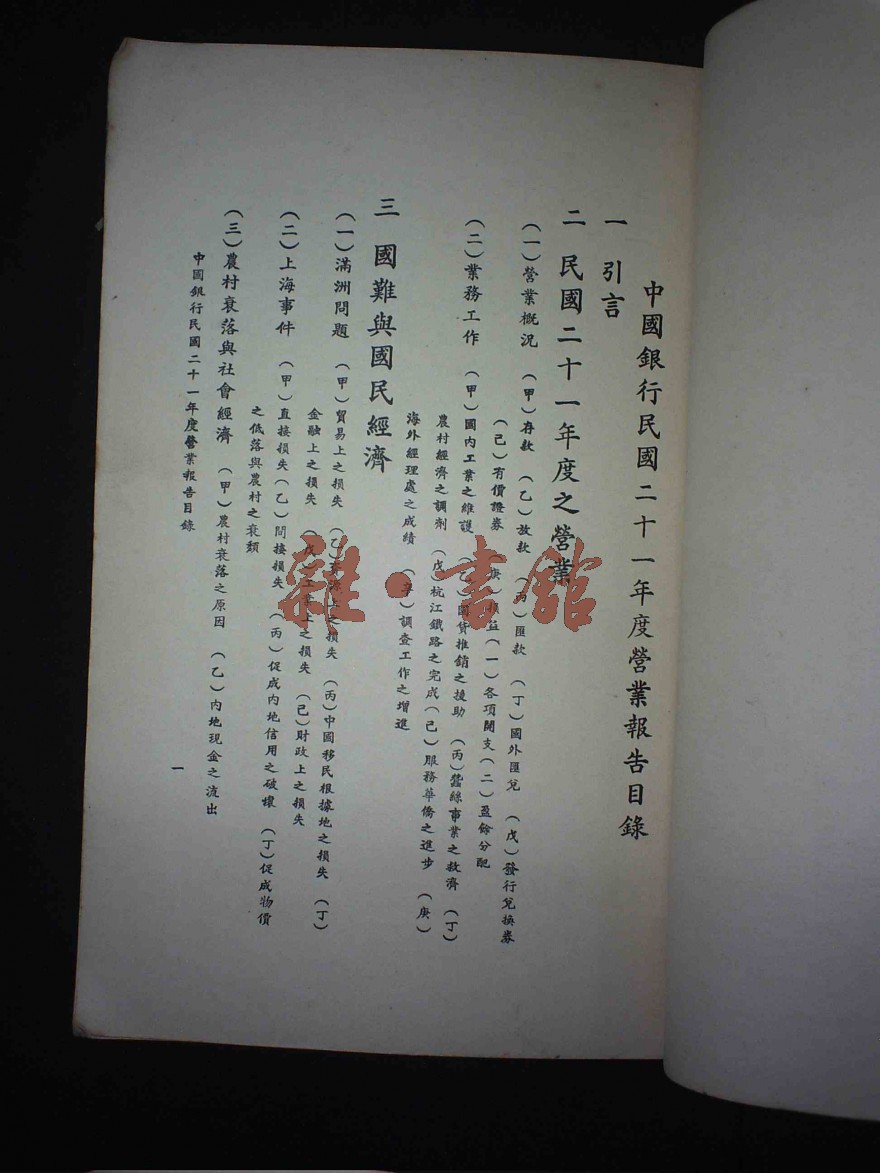 中國銀行民國二十一年度營業報告目錄
一 引言
二 民國二十一年度之營業
(一)營業概況 (甲)存款 (乙)放款 (丙)匯款 (丁)國外匯兌 (戊)發行兌換券
(己)有價證券 (庚)損益(一)各項開支(二)盈餘分配
(二)業務工作 (甲)國內工業之維護 (乙)國貨推銷之援助 (丙)蠶絲事業之救濟 (丁)
農村經濟之調劑 (戊)杭江鐵路之完成(己)服務華僑之進步 (庚)
海外經理處之成績 (辛)調查工作之增進
三 國難與國民經濟
(一)滿洲問題 (甲)貿易上之損失 (乙)上之損失 (丙)中國移民根據地之損失 (丁)
金融上之損失 (戊)工業上之損失 (己)財政上之損失
(二)上海事件 (甲)直接損失(乙)間接損失 (丙)促成內地信用之破壞 (丁)促成物價
之低落與農村之衰頹
(三)農村衰落與社會經濟 (甲)農村衰落之原因 (乙)內地現金之流出
中國銀行民國二十一年度營業報告目錄
一
雜·書館